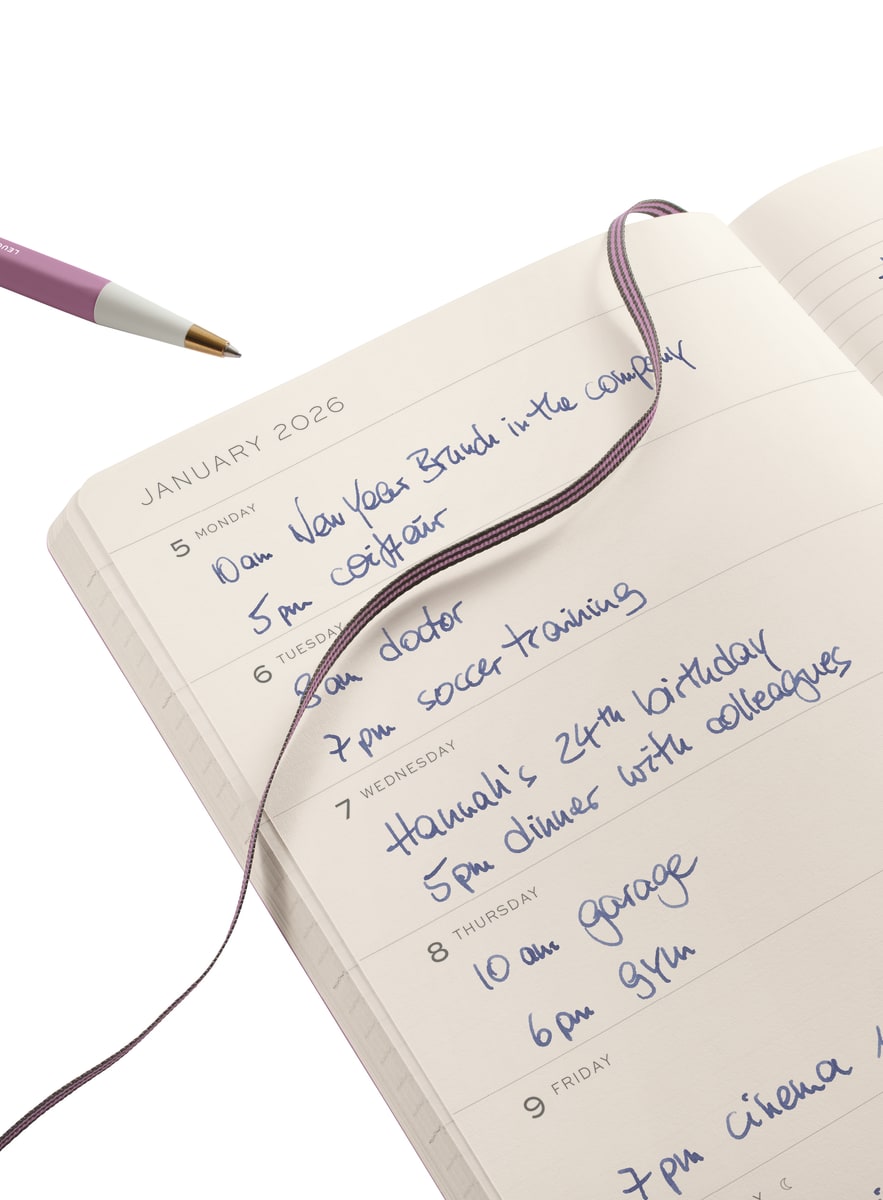 LEU
JANUARY 2026
5 MONDAY
10 am New Year Brunch in the company
5 pm coiffeur
6 TUESDAY
8 am doctor
7 pm soccer training
7 WEDNESDAY
Hannah's 24th birthday
5pm dinner with colleagues
8 THURSDAY
10 am garage
6 pm gym
9 FRIDAY
7 pm cinema